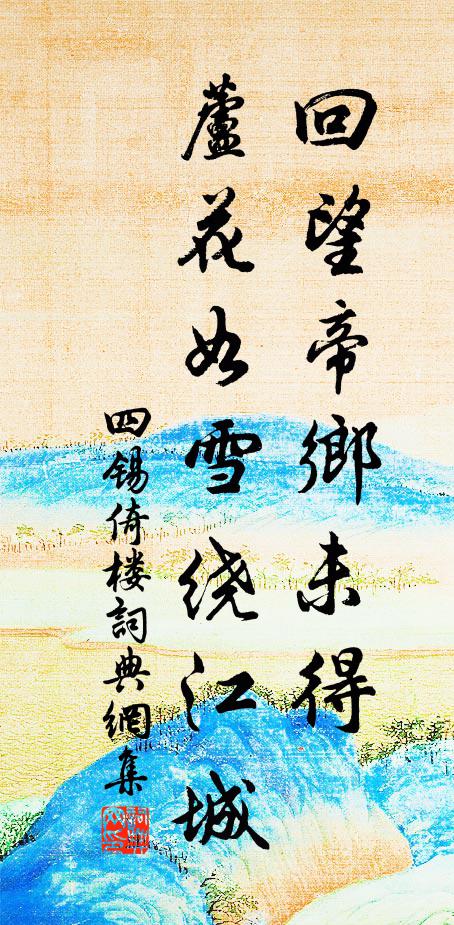 回望帝鄉未得
蘆花如雪绕江城
四錫倚楼詞典網集